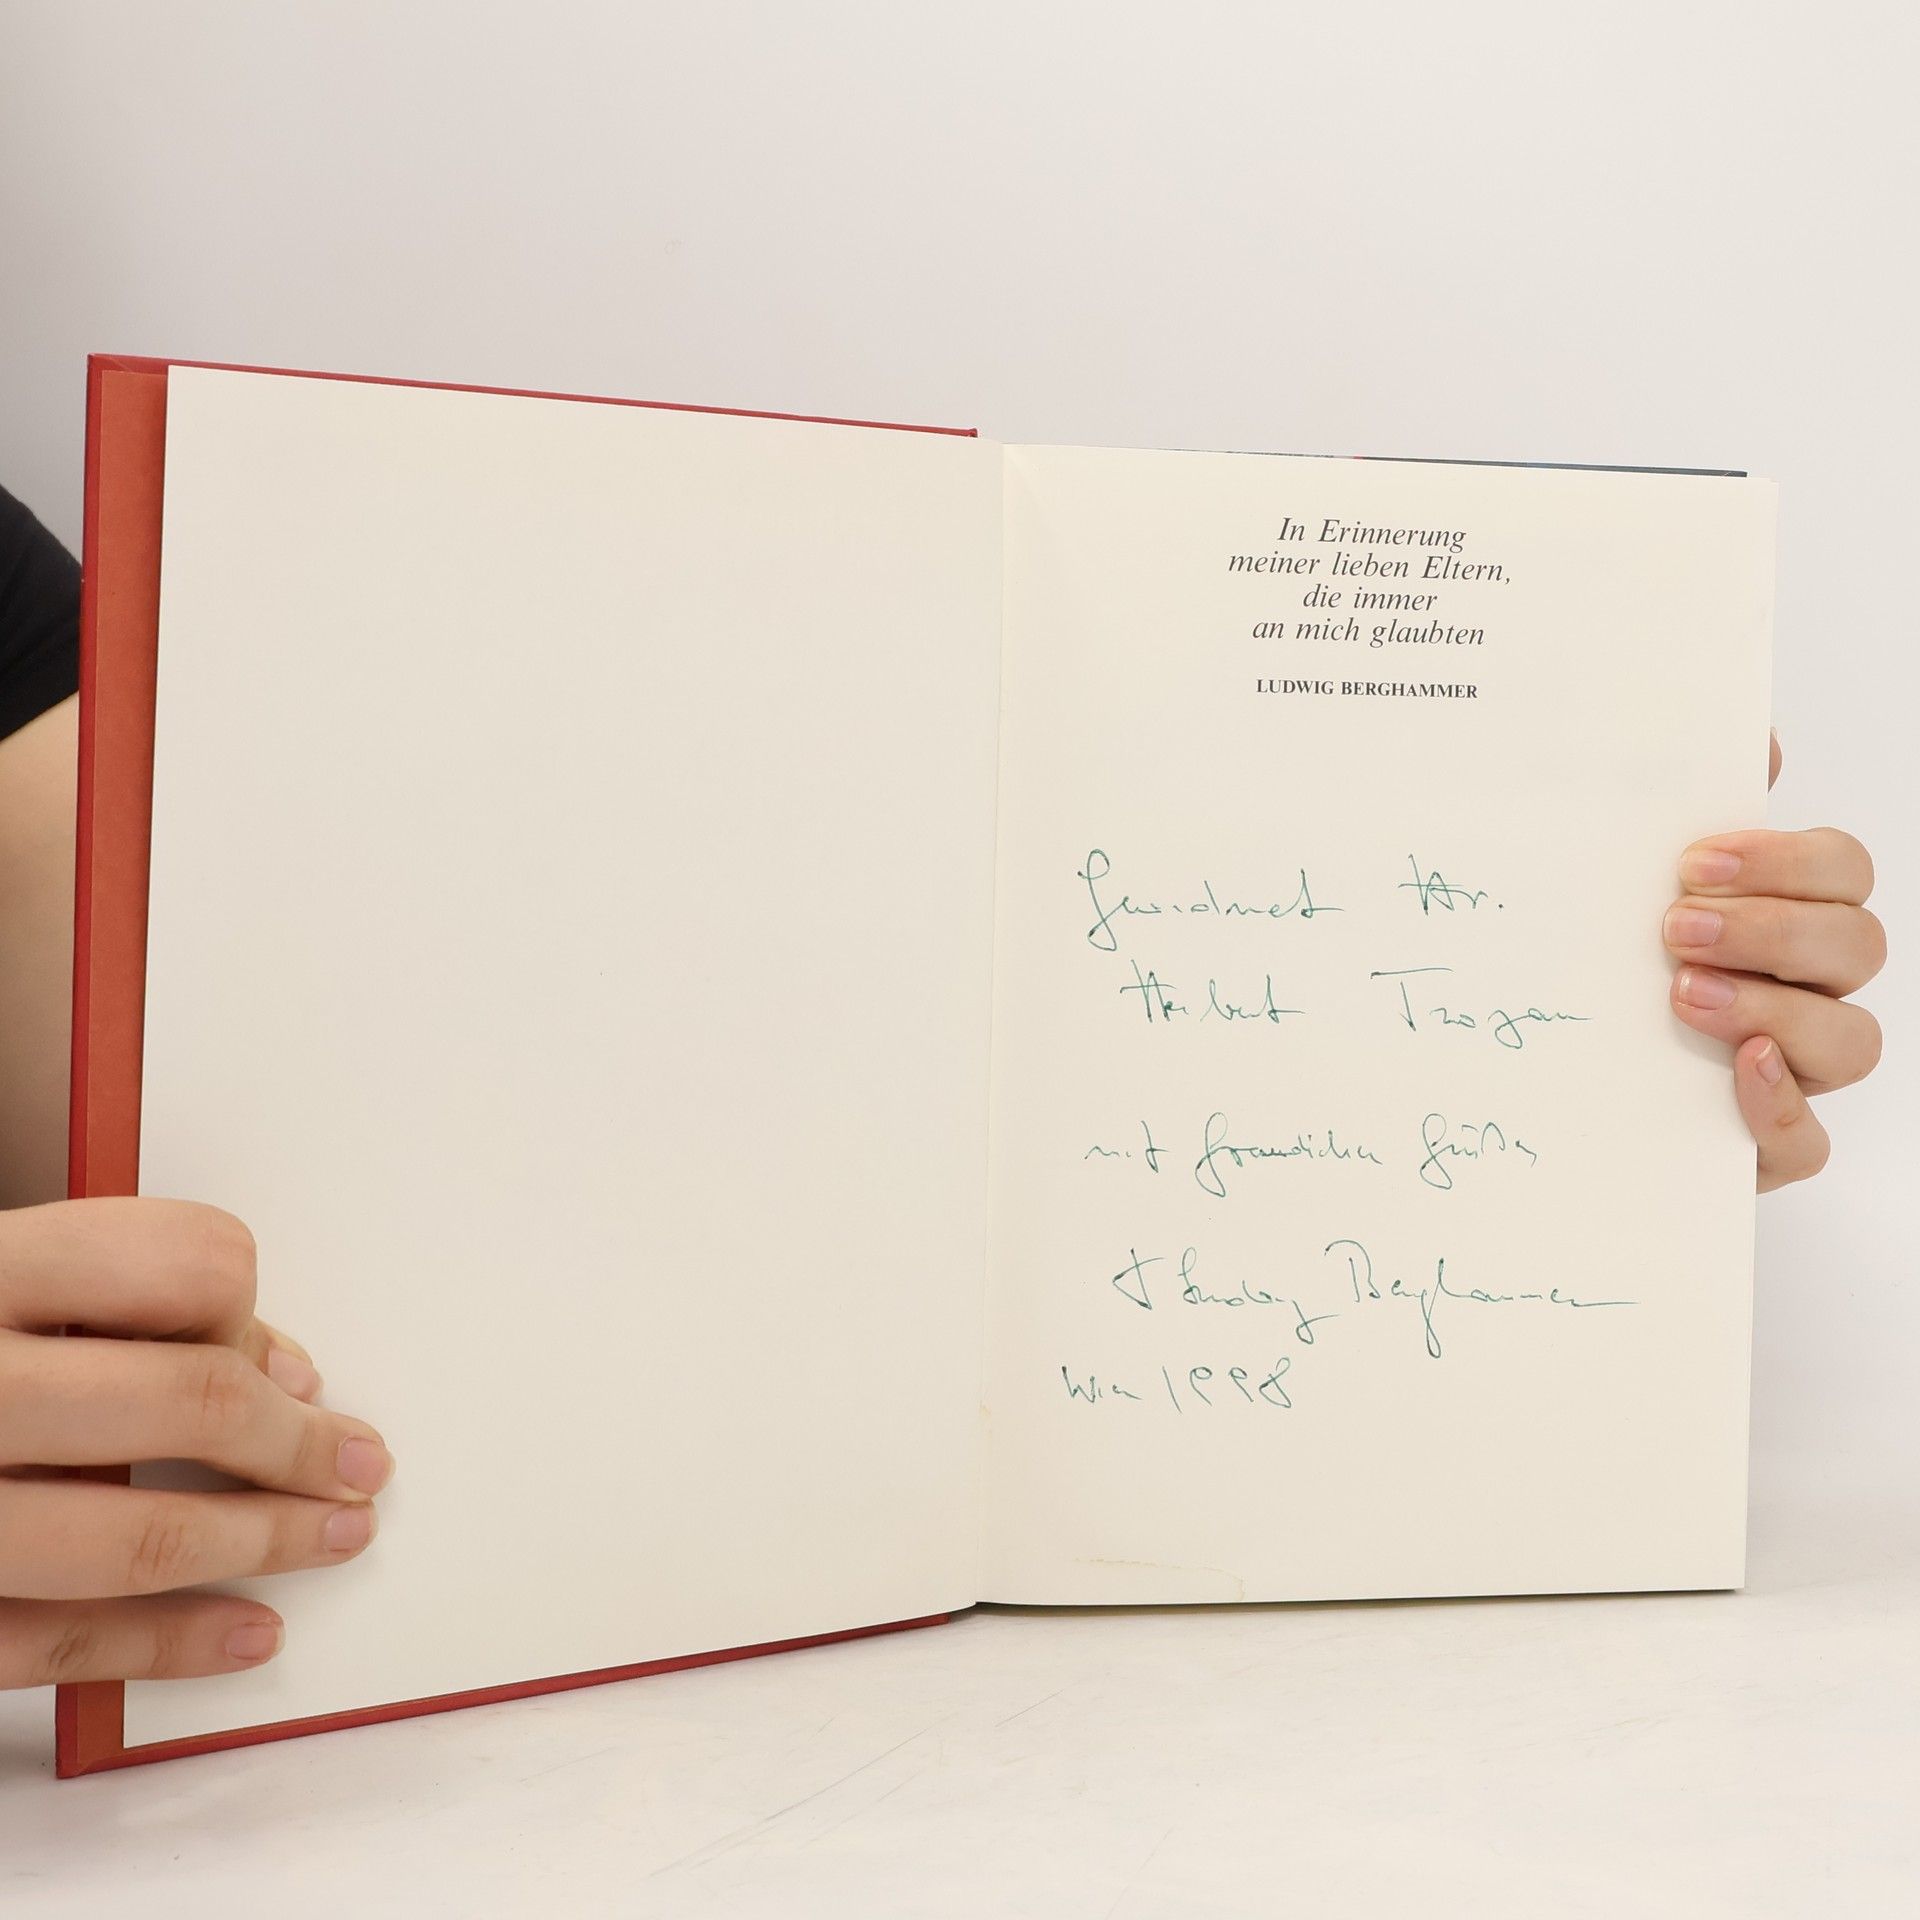 In Erinnerung
meiner lieben Eltern,
die immer
an mich glaubten
LUDWIG BERGHAMMER
Gewidmet Hr.
Herbert Trojan
mit freundlichen Grüßen
Ludwig Berghammer
Wien 1998